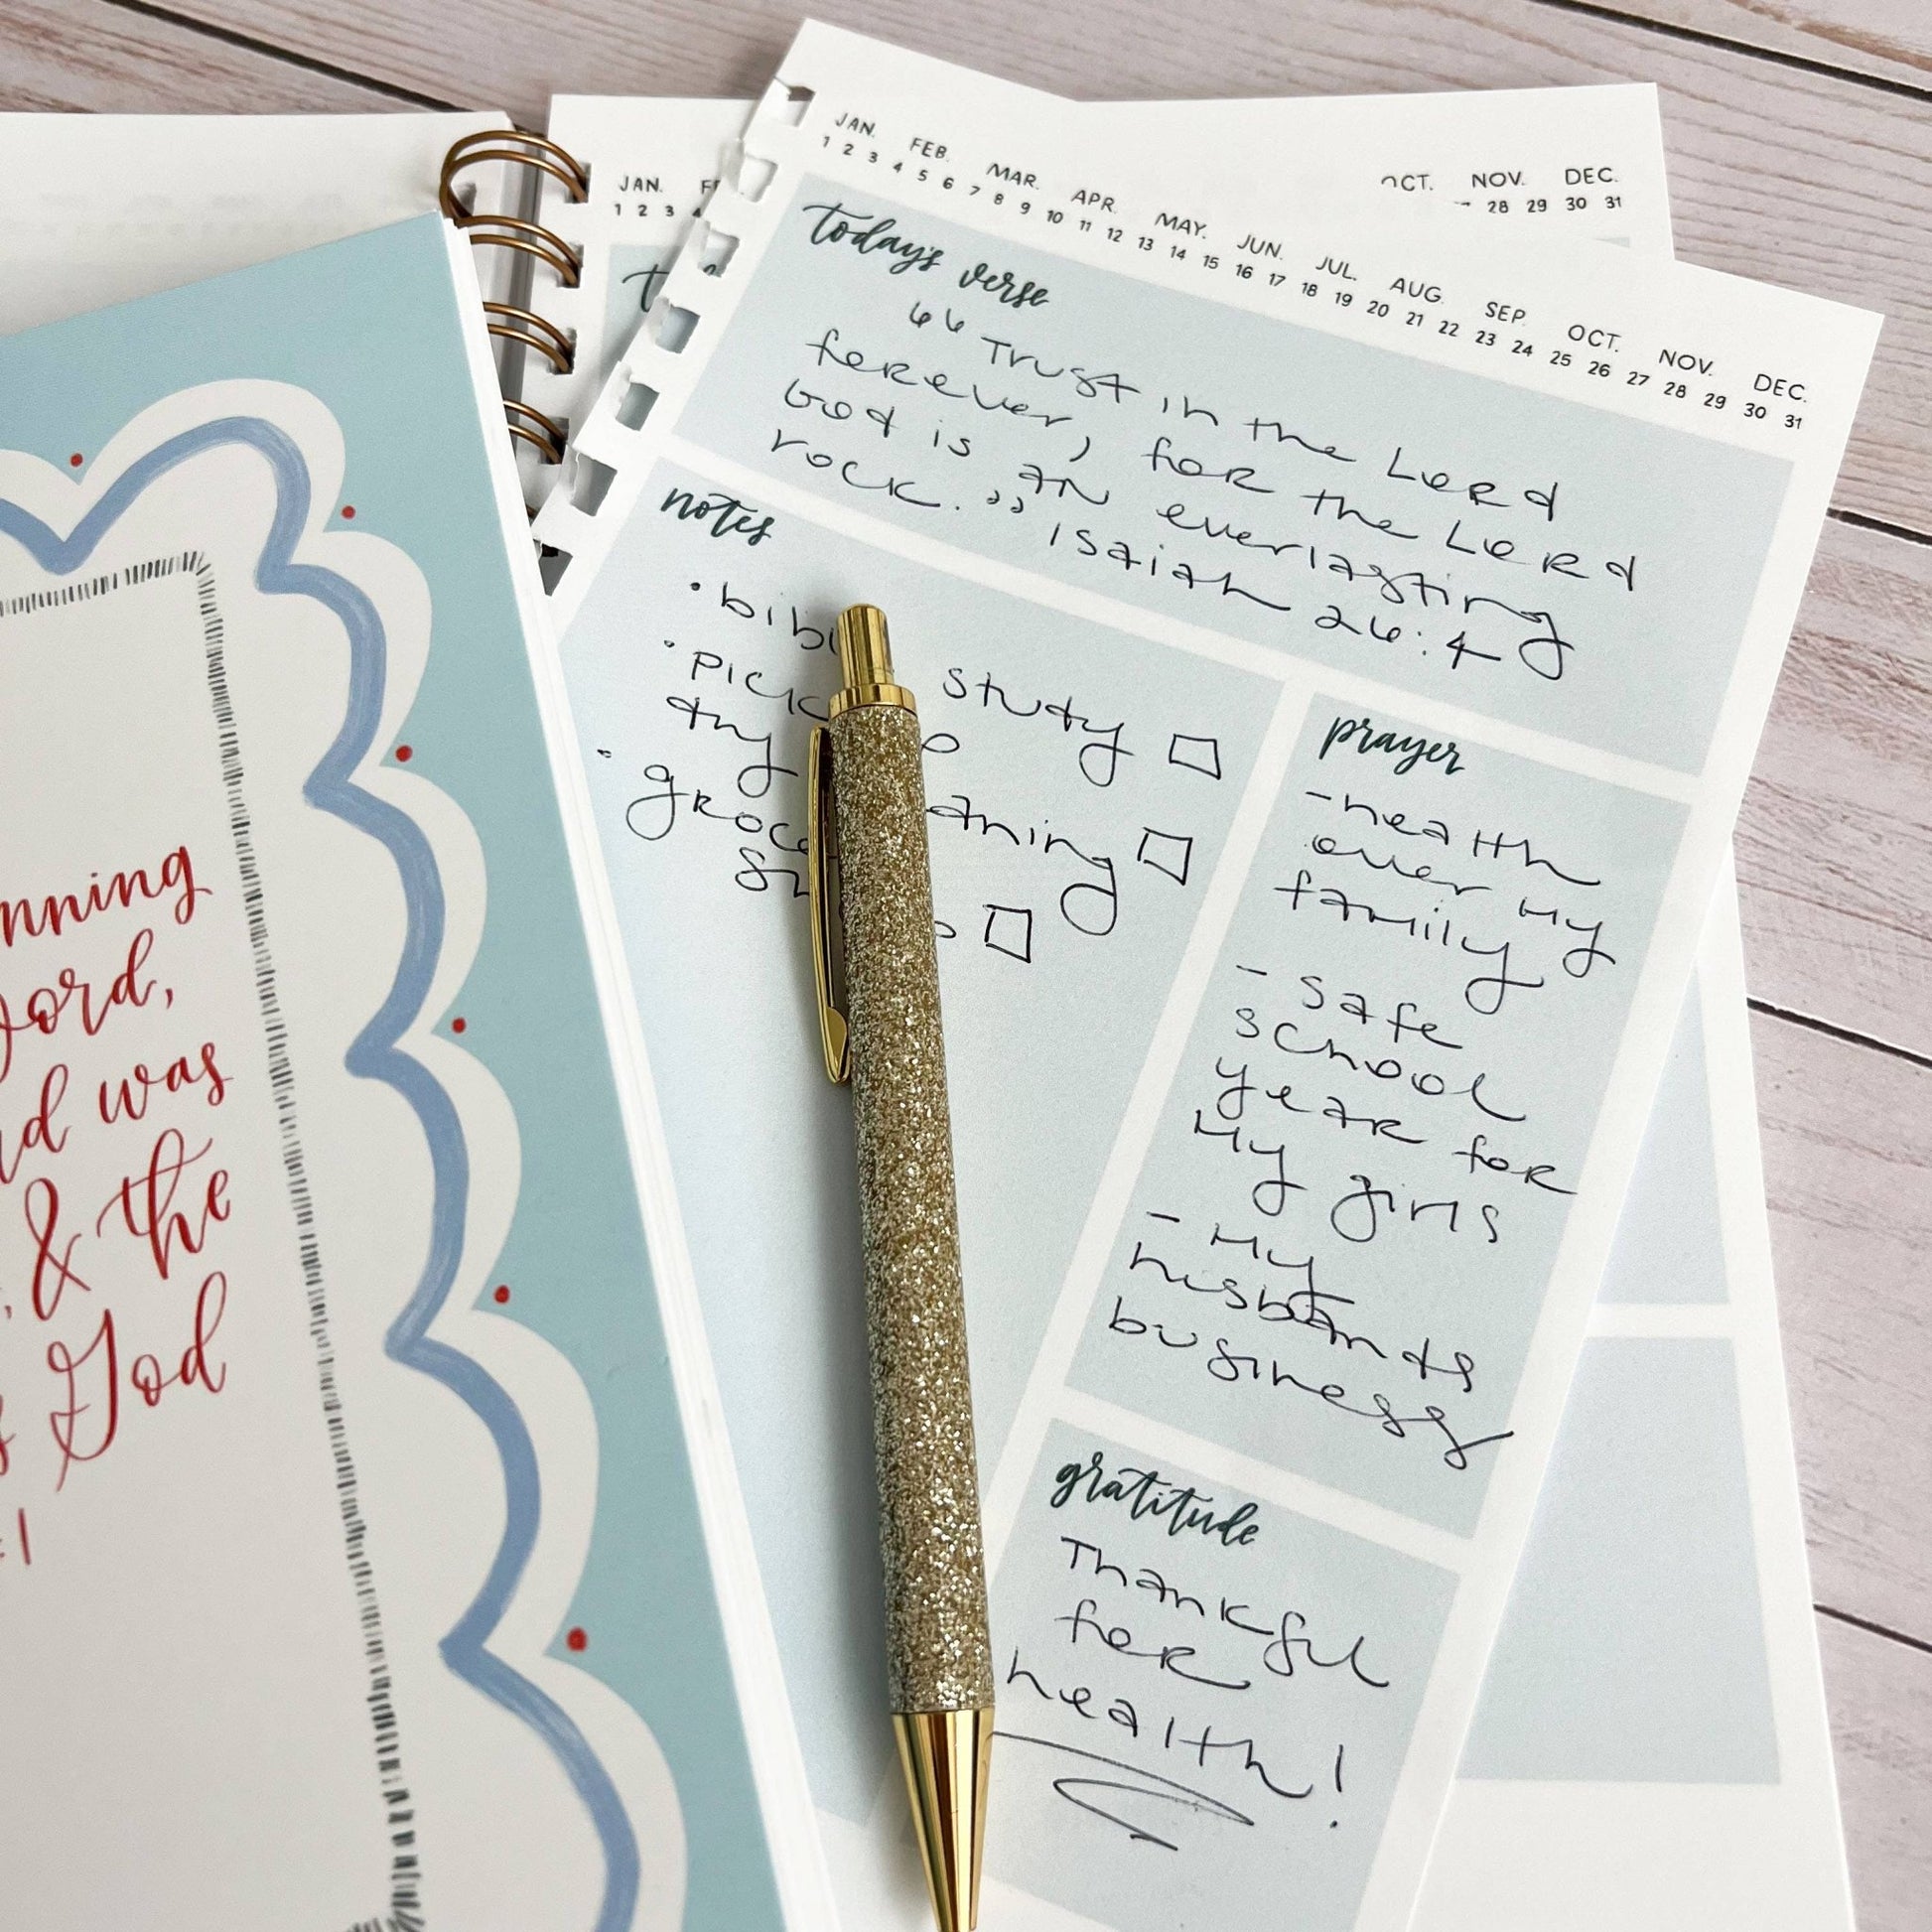 nning
ord,
d was
& the
God
:1
JAN.
1 2 3 4
OCT. NOV. DEC.
28 29 30 31
JAN. FEB. MAR. APR. MAY. JUN. JUL. AUG. SEP. OCT. NOV. DEC.
1 2 3 4 5 6 7 8 9 10 11 12 13 14 15 16 17 18 19 20 21 22 23 24 25 26 27 28 29 30 31
today's verse
"Trust in the Lord
forever, for the Lord
God is an everlasting
rock." Isaiah 26:4
notes
• bibl study
• pick
dry aning
• groce
sh
prayer
- health
over my
family
- safe
school
year for
my girls
- my
husbands
business
gratitude
Thankful
for
health!